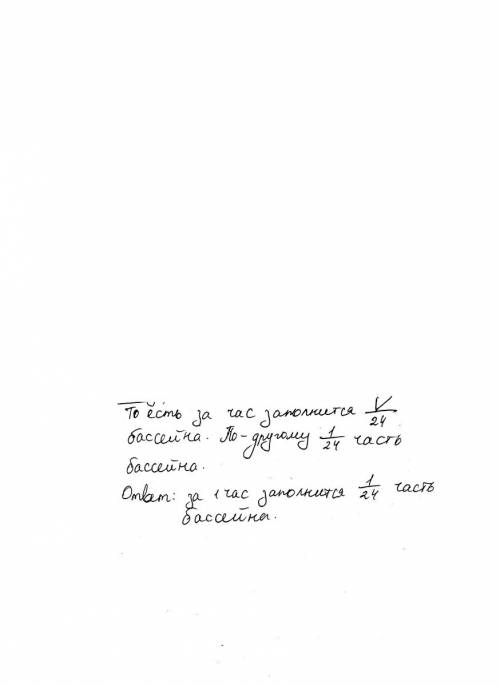 То есть за час заполнится V/24
бассейна. По-другому 1/24 часть
бассейна.
Ответ: за 1 час заполнится 1/24 часть
бассейна.